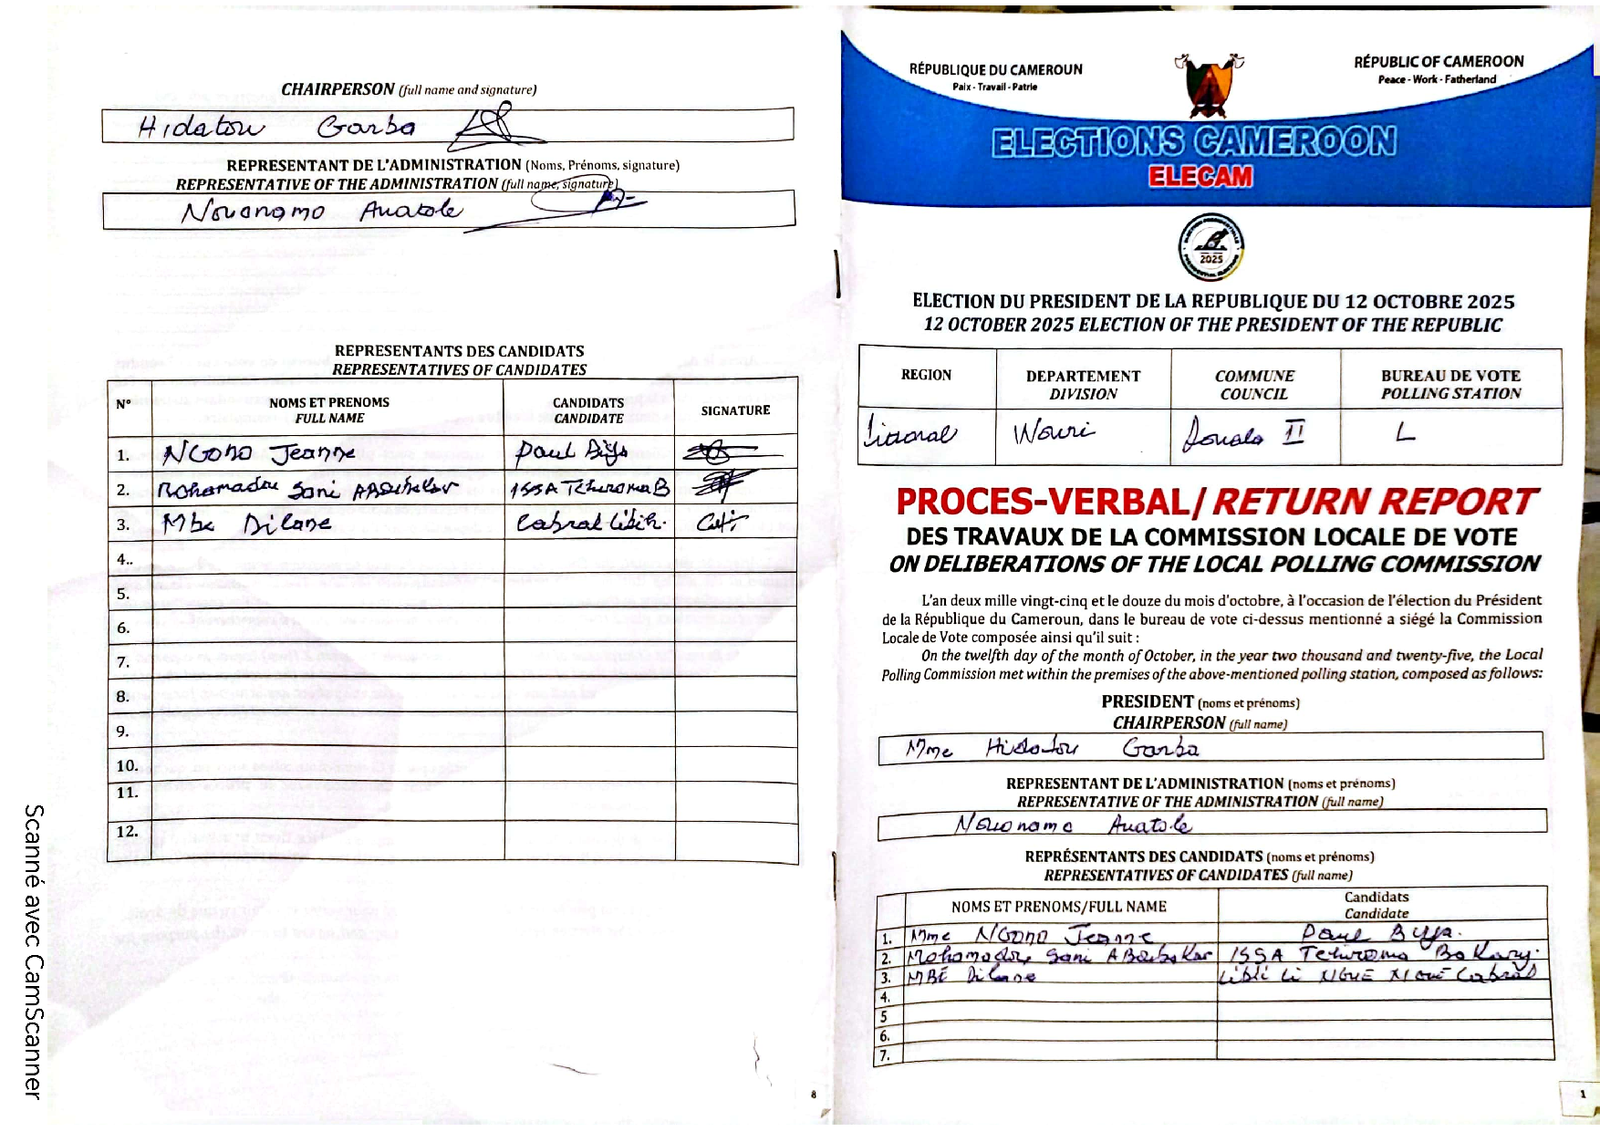 CHAIRPERSON (full name and signature)
Hidatou Garba
REPRESENTANT DE L'ADMINISTRATION (Noms, Prénoms, signature)
REPRESENTATIVE OF THE ADMINISTRATION (full name, signature)
Nouonamo Anatole
REPRESENTANTS DES CANDIDATS
REPRESENTATIVES OF CANDIDATES
N° NOMS ET PRENOMS CANDIDATS SIGNATURE
FULL NAME CANDIDATE
1. NGONO Jeanne Paul Biya
2. Mohamadou Sani ABoubakar ISSA Tchiroma B
3. Mbe Dilane Cabral Libih.
4..
5.
6.
7.
8.
9.
10.
11.
12.
8
Scanné avec CamScanner
RÉPUBLIQUE DU CAMEROUN
Paix - Travail - Patrie
RÉPUBLIC OF CAMEROON
Peace - Work - Fatherland
ELECTIONS CAMEROON
ELECAM
2025
ELECTION DU PRESIDENT DE LA REPUBLIQUE DU 12 OCTOBRE 2025
12 OCTOBER 2025 ELECTION OF THE PRESIDENT OF THE REPUBLIC
REGION DEPARTEMENT COMMUNE BUREAU DE VOTE
DIVISION COUNCIL POLLING STATION
Littoral Wouri Douala II L
PROCES-VERBAL/RETURN REPORT
DES TRAVAUX DE LA COMMISSION LOCALE DE VOTE
ON DELIBERATIONS OF THE LOCAL POLLING COMMISSION
L'an deux mille vingt-cinq et le douze du mois d'octobre, à l'occasion de l'élection du Président
de la République du Cameroun, dans le bureau de vote ci-dessus mentionné a siégé la Commission
Locale de Vote composée ainsi qu'il suit :
On the twelfth day of the month of October, in the year two thousand and twenty-five, the Local
Polling Commission met within the premises of the above-mentioned polling station, composed as follows:
PRESIDENT (noms et prénoms)
CHAIRPERSON (full name)
Mme Hidatou Garba
REPRESENTANT DE L'ADMINISTRATION (noms et prénoms)
REPRESENTATIVE OF THE ADMINISTRATION (full name)
Nouonamo Anatole
REPRÉSENTANTS DES CANDIDATS (noms et prénoms)
REPRESENTATIVES OF CANDIDATES (full name)
NOMS ET PRENOMS/FULL NAME Candidats
Candidate
1. Mme NGONO Jeanne Paul Biya.
2. Mohamadou Sani ABoubakar ISSA Tchiroma Bakary.
3. MBÉ Dilane Libii Li NGUE NGUÉ Cabral
4.
5
6.
7.
1